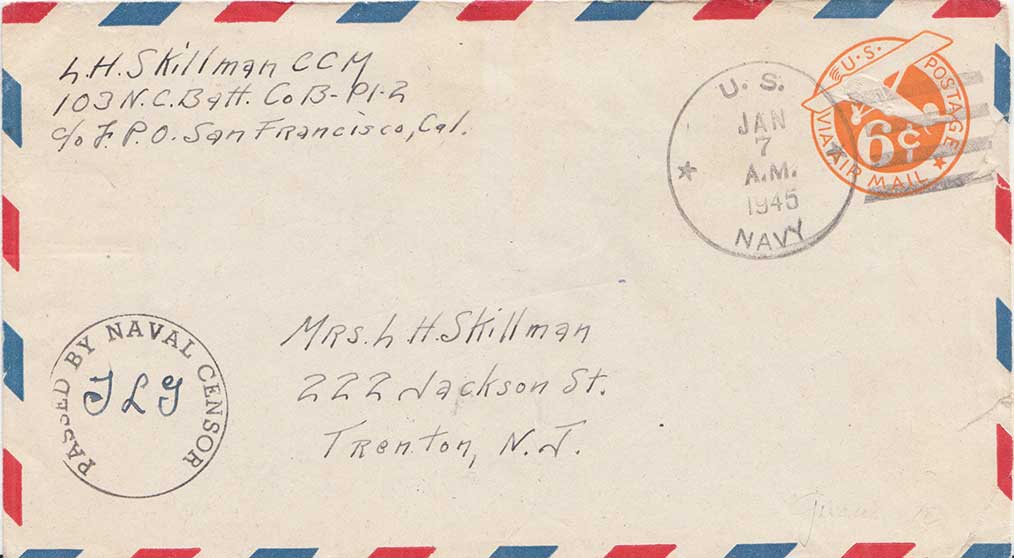 L.H. Skillman CCM
103 N.C. Batt. Co B-Pl-2
c/o F.P.O. San Francisco, Cal.
U.S.
JAN
7
A.M.
1945
NAVY
U.S. POSTAGE
6¢
VIA AIR MAIL
PASSED BY NAVAL CENSOR
JLG
Mrs. L H. Skillman
222 Jackson St.
Trenton, N.J.